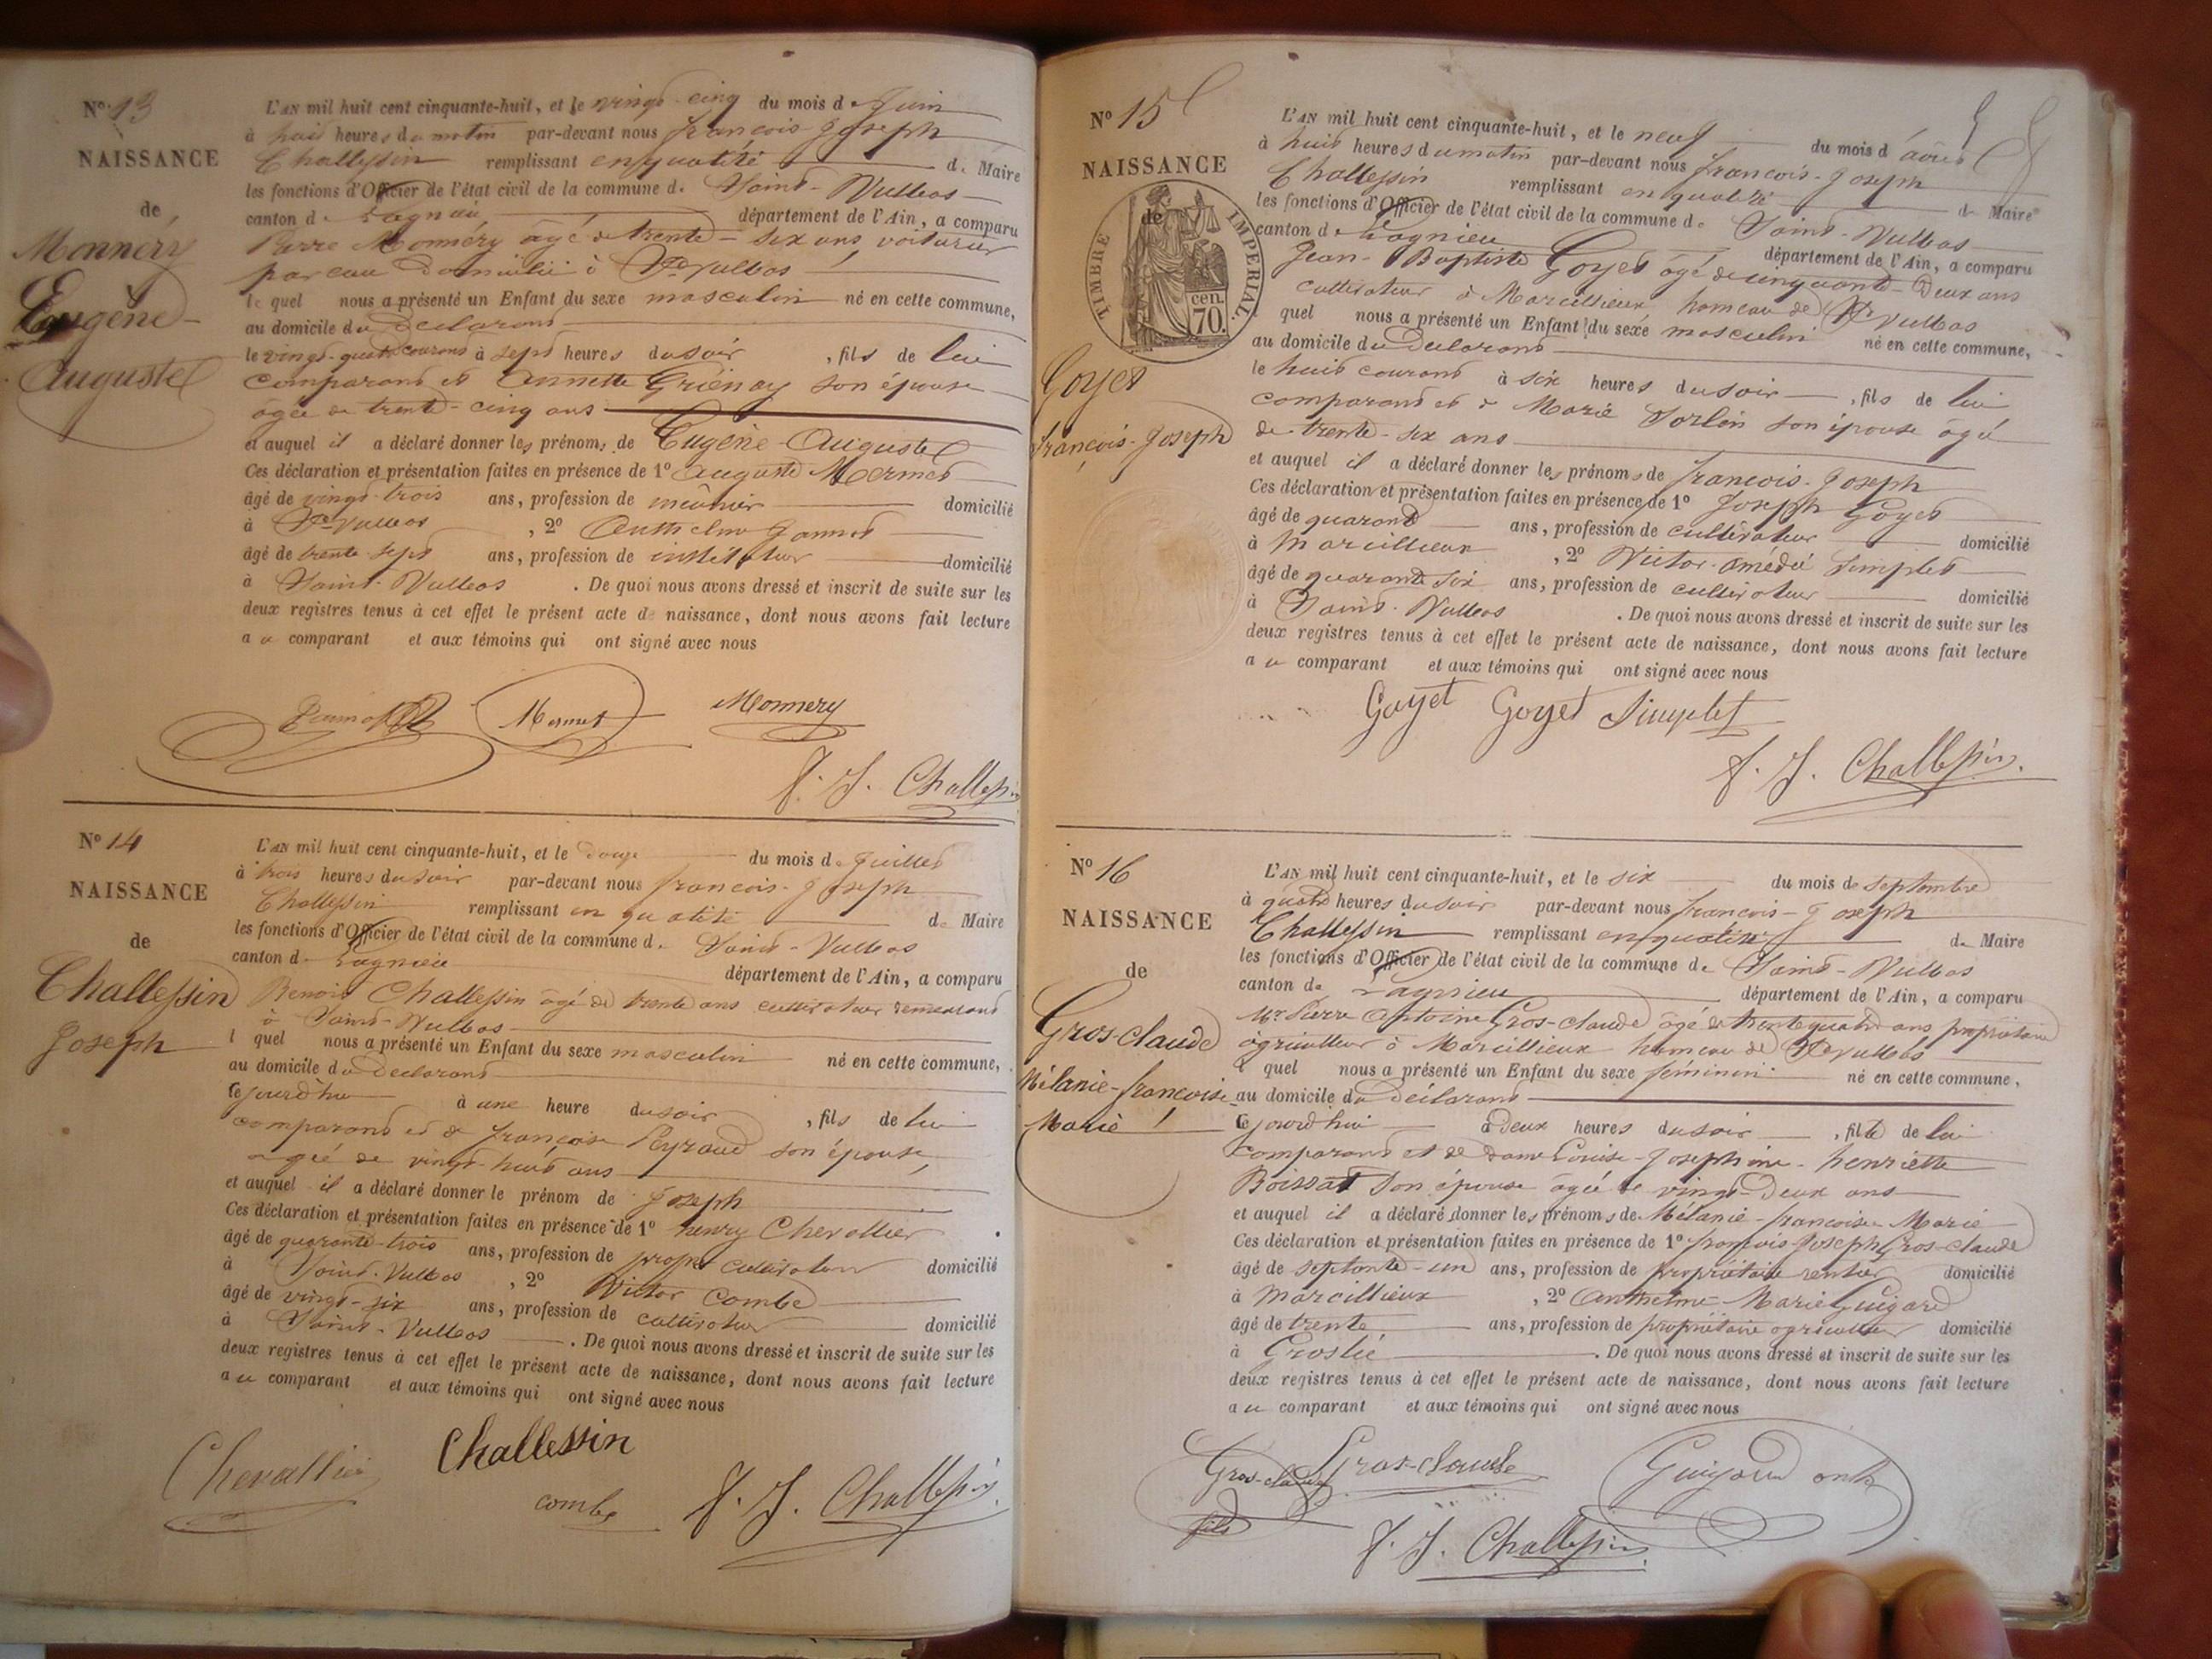 Nº 13
NAISSANCE
de
Monnery
Eugène-
Auguste
L'AN mil huit cent cinquante-huit, et le vingt-cinq du mois de Juin
à huit heures du matin par-devant nous françois-Joseph
Challessin remplissant en qualité de Maire
les fonctions d'Officier de l'état civil de la commune de Saint-Vulbas
canton de Lagnieu département de l'Ain, a comparu
Pierre Monnery âgé de trente-six ans, voiturier
par eau domicilié à St Vulbas
lequel nous a présenté un Enfant du sexe masculin né en cette commune,
au domicile du Déclarant
le vingt-quatre courant à sept heures du soir, fils de lui
comparant et Annette Griénay son épouse
âgée de trente-cinq ans
et auquel il a déclaré donner les prénoms de Eugène-Auguste
Ces déclaration et présentation faites en présence de 1º Auguste Mermet
âgé de vingt-trois ans, profession de meunier domicilié
à St Vulbas, 2º
âgé de trente-sept ans, profession de instituteur domicilié
à Saint-Vulbas. De quoi nous avons dressé et inscrit de suite sur les
deux registres tenus à cet effet le présent acte de naissance, dont nous avons fait lecture
au comparant et aux témoins qui ont signé avec nous
Mermet Monnery
f. J. Challessin
Nº 14
NAISSANCE
de
Challessin
Joseph
L'AN mil huit cent cinquante-huit, et le douze du mois de Juillet
à trois heures du soir par-devant nous françois-Joseph
Challessin remplissant en qualité de Maire
les fonctions d'Officier de l'état civil de la commune de Saint-Vulbas
canton de Lagnieu département de l'Ain, a comparu
Benoit Challessin âgé de trente ans cultivateur demeurant
à Saint-Vulbas
lequel nous a présenté un Enfant du sexe masculin né en cette commune,
au domicile du Déclarant
cejourd'hui à une heure du soir, fils de lui
comparant et de françoise Peyraud son épouse,
agée de vingt-huit ans
et auquel il a déclaré donner le prénom de Joseph
Ces déclaration et présentation faites en présence de 1º henry Chevallier
âgé de quarante-trois ans, profession de propre cultivateur domicilié
à Saint-Vulbas, 2º Victor Combe
âgé de vingt-six ans, profession de cultivateur domicilié
à Saint-Vulbas. De quoi nous avons dressé et inscrit de suite sur les
deux registres tenus à cet effet le présent acte de naissance, dont nous avons fait lecture
au comparant et aux témoins qui ont signé avec nous
Chevallier Challessin
combe f. J. Challessin
Nº 15
NAISSANCE
de
TIMBRE IMPERIAL
70 cen.
Goyet
françois-Joseph
L'AN mil huit cent cinquante-huit, et le neuf du mois d'août
à huit heures du matin par-devant nous françois-Joseph
Challessin remplissant en qualité de Maire
les fonctions d'Officier de l'état civil de la commune de Saint-Vulbas
canton de Lagnieu département de l'Ain, a comparu
Jean-Baptiste Goyet âgé de cinquante-deux ans
cultivateur à Marcillieux hameau de St Vulbas
quel nous a présenté un Enfant du sexe masculin né en cette commune,
au domicile du Déclarant
le huit courant à six heures du soir, fils de lui
comparant et de Marie Sorlin son épouse agée
de trente-six ans
et auquel il a déclaré donner les prénoms de françois-Joseph
Ces déclaration et présentation faites en présence de 1º Joseph Goyet
âgé de quarante ans, profession de cultivateur domicilié
à Marcillieux, 2º Victor-Amédé Simplet
âgé de quarante six ans, profession de cultivateur domicilié
à Saint-Vulbas. De quoi nous avons dressé et inscrit de suite sur les
deux registres tenus à cet effet le présent acte de naissance, dont nous avons fait lecture
au comparant et aux témoins qui ont signé avec nous
Goyet Goyet Simplet
f. J. Challessin
Nº 16
NAISSANCE
de
Gros-claude
Mélanie-francoise
Marie
L'AN mil huit cent cinquante-huit, et le six du mois de septembre
à quatre heures du soir par-devant nous françois-Joseph
Challessin remplissant en qualité de Maire
les fonctions d'Officier de l'état civil de la commune de Saint-Vulbas
canton de Lagnieu département de l'Ain, a comparu
Mr Pierre Antoine Gros-claude âgé de trente quatre ans propriétaire
agriculteur à Marcillieux hameau de St Vulbas
quel nous a présenté un Enfant du sexe féminin né en cette commune,
au domicile du Déclarant
Cejourd'hui à deux heures du soir, fille de lui
comparant et de dame Louise-Josephine-henriette
Boissat son épouse agée de vingt-deux ans
et auquel il a déclaré donner les prénoms de Mélanie-francoise Marie
Ces déclaration et présentation faites en présence de 1º françois-Joseph Gros-claude
âgé de septante-un ans, profession de propriétaire rentier domicilié
à Marcillieux, 2º Anthelme Marie Guigard
âgé de trente ans, profession de propriétaire agriculteur domicilié
à Groslée. De quoi nous avons dressé et inscrit de suite sur les
deux registres tenus à cet effet le présent acte de naissance, dont nous avons fait lecture
au comparant et aux témoins qui ont signé avec nous
Gros-claude Gros-claude Guigard anth
fils
f. J. Challessin